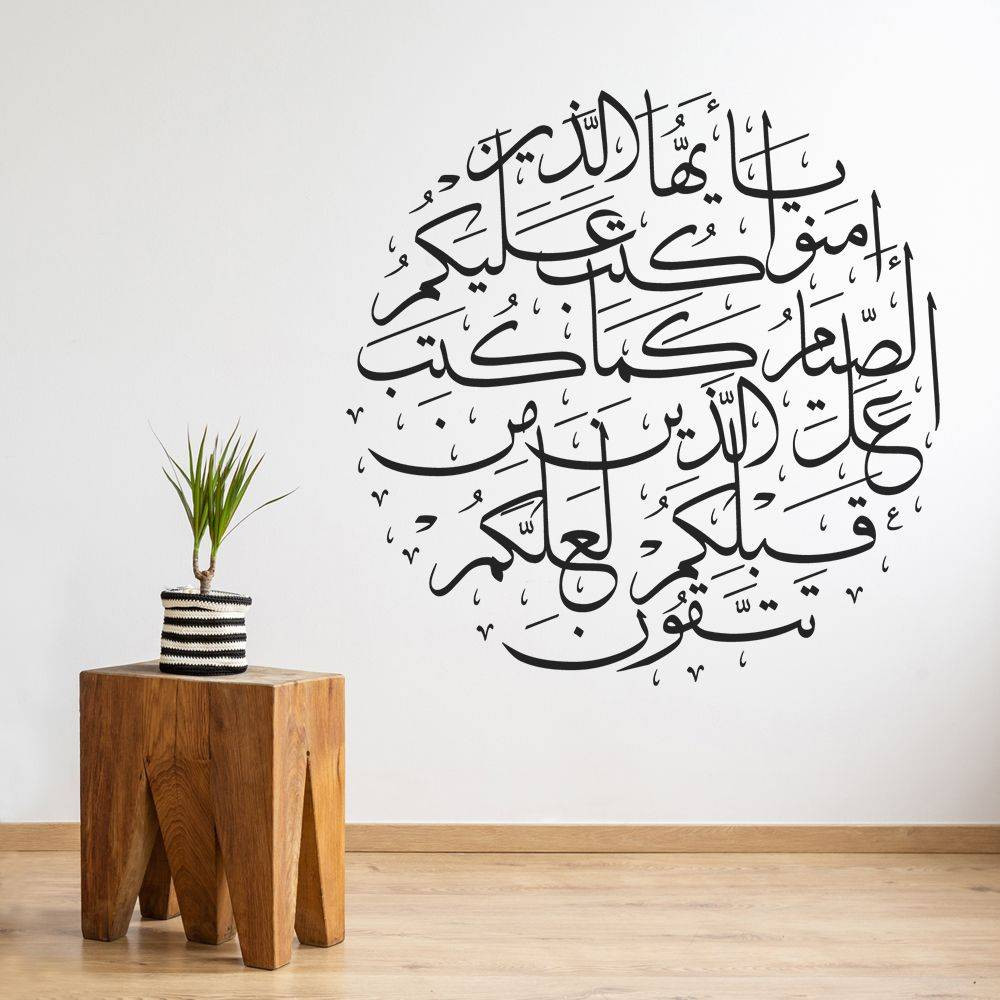 يَا أَيُّهَا الَّذِينَ
اٰمَنُوا كُتِبَ عَلَيْكُمُ
الصِّيَامُ كَمَا كُتِبَ
عَلَى الَّذِينَ مِنْ
قَبْلِكُمْ لَعَلَّكُمْ
تَتَّقُونَ